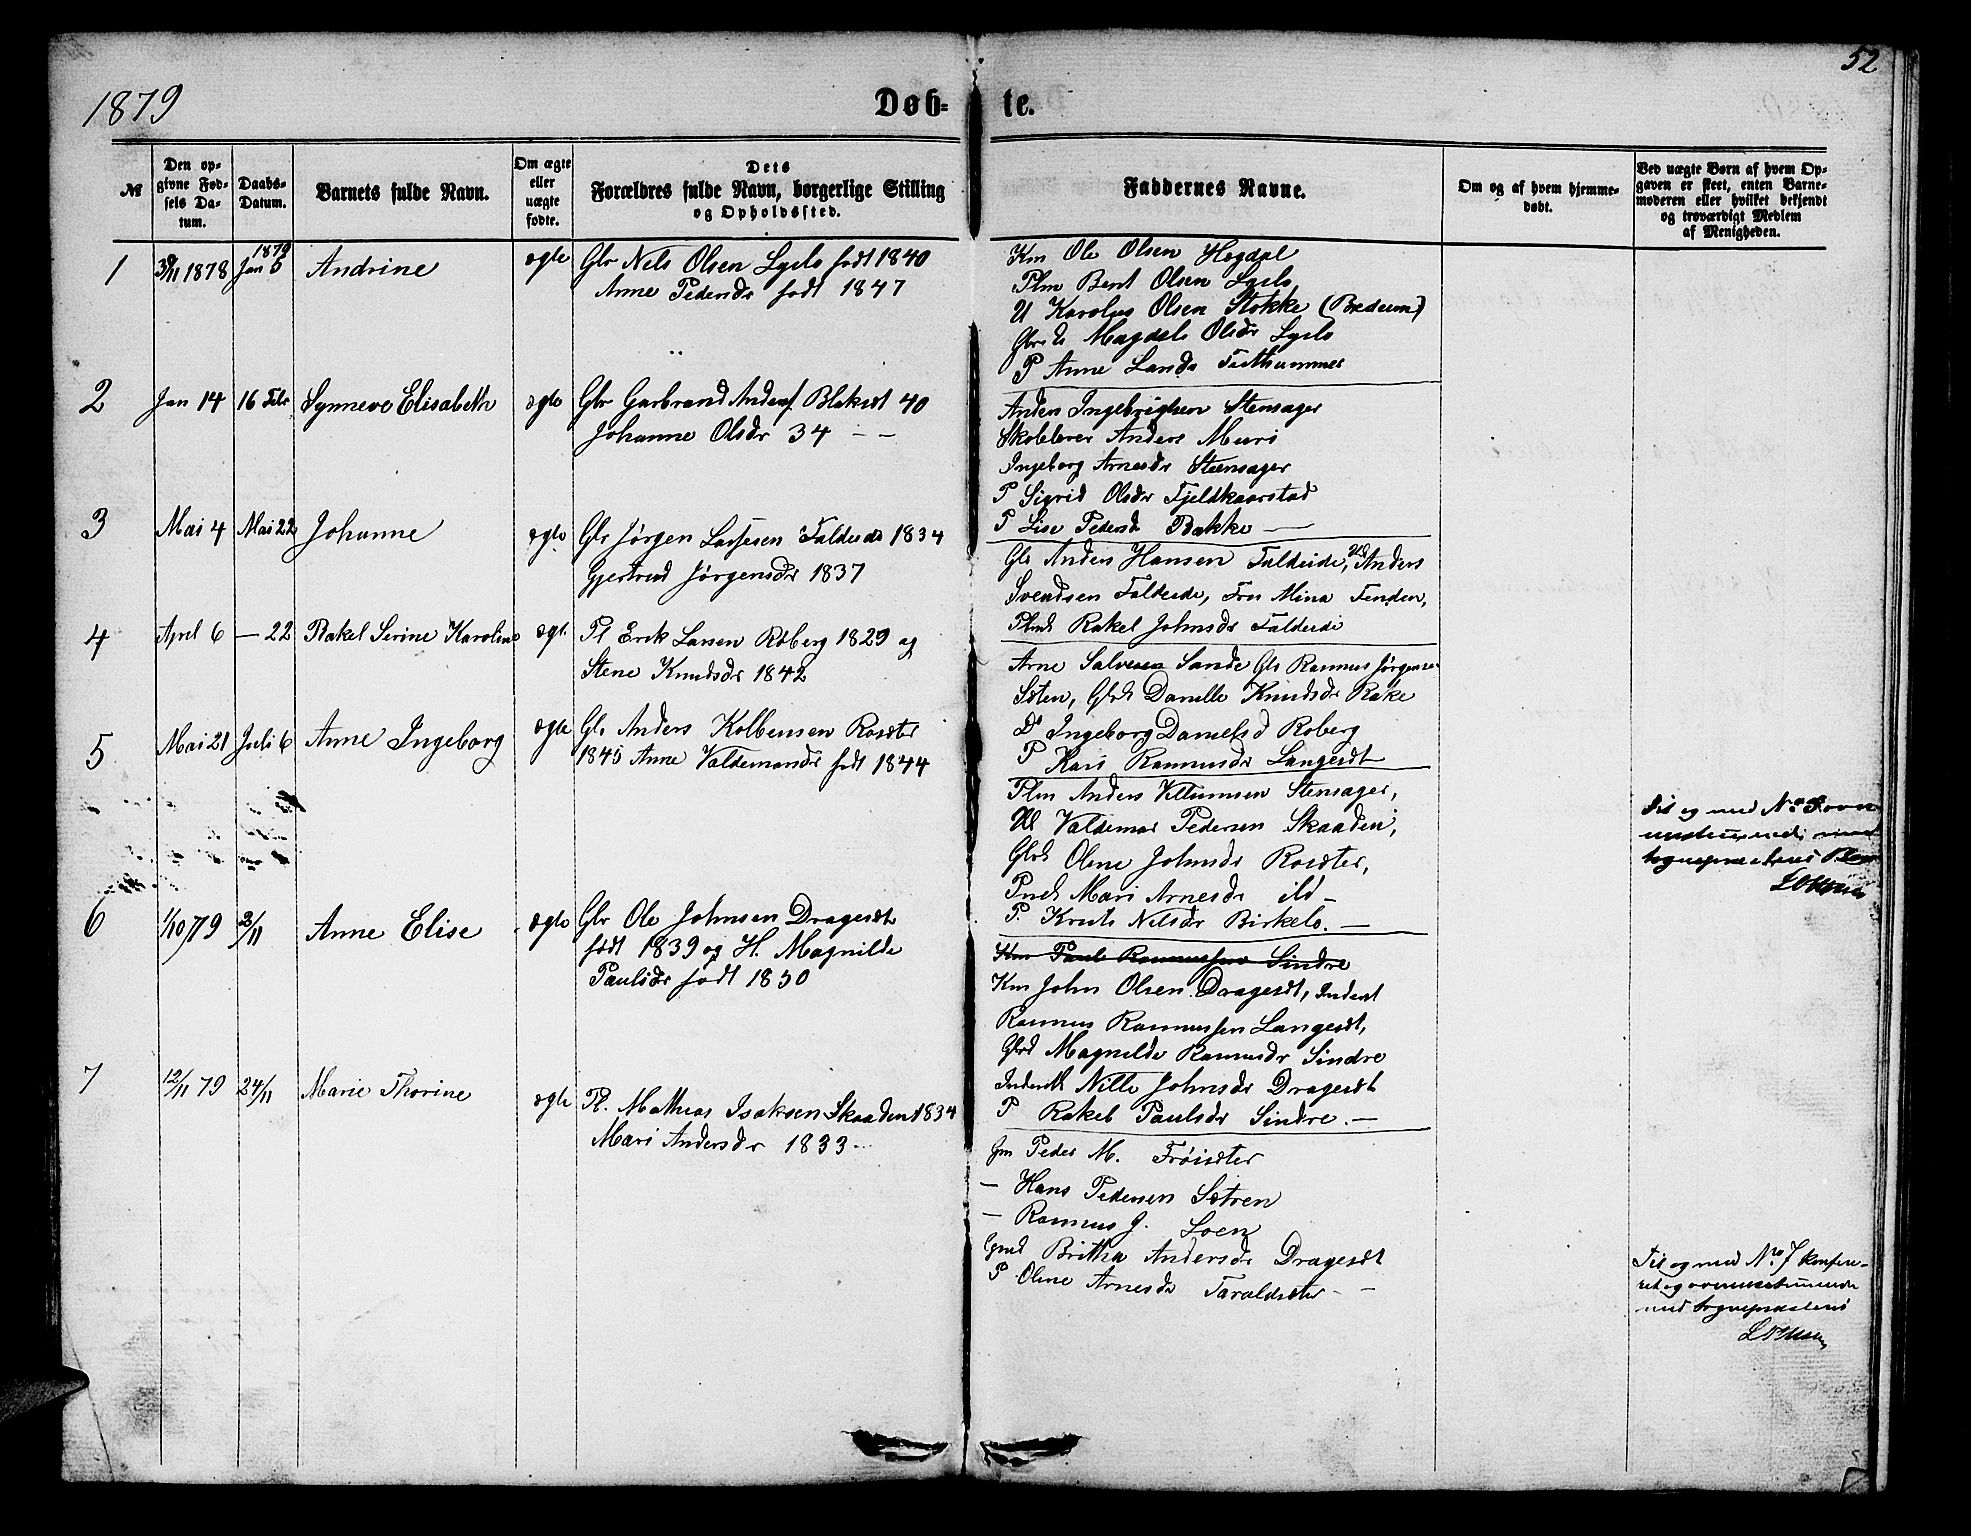 52
1879
Døb-te.
№
Den op-
givne Fød-
sels Da-
tum.
Daabs-
Datum.
Barnets fulde Navn.
Om ægte
eller
uægte
fødte.
Dets
Forældres fulde Navn, borgerlige Stilling
og Opholdssted.
Faddernes Navne.
Om og af hvem hjemme-
døbt.
Ved uægte Børn af hvem Op-
gaven er skeet, enten Barne-
moderen eller hvilket bekjendt
og troværdigt Medlem
af Menigheden.
1 30/11 1878 1879 Jan 5 Andrine ægte Gbr Nils Olsen født 1840
Anne Pedersdr født 1847
Km Ole Olsen Hegdal
Plm Bent Olsen
U Karolus Olsen Stokke
Olsdr
P Anne Sande
2 Jan 14 16 Febr Synneve Elisabeth ægte Gbr Garbrand Anders. Blakset 40
Johanne Olsdr 34 – –
Anders Ingebrigtsen Stensager
Skolelærer Anders Muri
Ingeborg Arnesdr Stensager
P Sigrid Olsdr Fjeldkaarstad
P Lise Pedersd Bakke —
3 Mai 4 Mai 22 Johanne ægte Gbr Jørgen Lassesen Faldeide 1834
Gjertrud Jørgensdr 1837
Gbr Anders Hansen Faldeide, Anders
Svendsen Faldeide, Fru Mina Tenden,
Rakel Johnsdr Faldeide
4 April 6 — 22 Rakel Serine Karoline ægte Pl Erik Larsen Roberg 1829 og
Stene Knudsdr 1842
Arne Salvesen Sande Gbr Rasmus Jørgense
Sæten, Danielle Knudsdr Rake
Ds Ingeborg Danielsd Roberg
P Kari Rasmusdr Langesæt
5 Mai 21 Juli 6 Anne Ingeborg ægte Gbr Anders Kolbensen Rosæter
1845 Anne Valdemarsdr født 1844
Plm Anders Stensager,
Valdemar Pedersen Skaaden,
Olene Johnsdr Rosæter,
Mari Arnesdr ibd –
P. Nilsdr Birkelo. —
Til og med No
6 1/10 79 2/11 Anne Elise ægte Gbr Ole Johnsen Dragesæt
født 1839 og H. Magnilde
Paulsdr født 1850
Km Paul Rasmussen Sindre
Km John Olsen Dragesæt,
Rasmus Rasmussen Langesæt,
Magnilde Rasmusdr Sindre
Nille Johnsdr Dragesæt
P Rakel Paulsdr Sindre. —
7 12/11 79 24/11 Marie Thorine ægte Pl. Mathias Isaksen Skaaden 1834
Mari Andersdr 1833 –
Gm Peder M. Frøisæter
— Hans Pedersen Sætren
— Rasmus J. Loen
Britha Andersdr Dragesæt
P Olene Arnesdr Taraldsæter – –
Til og med No 7 konfere-
ret og overensstemmende
med Sognepræstens